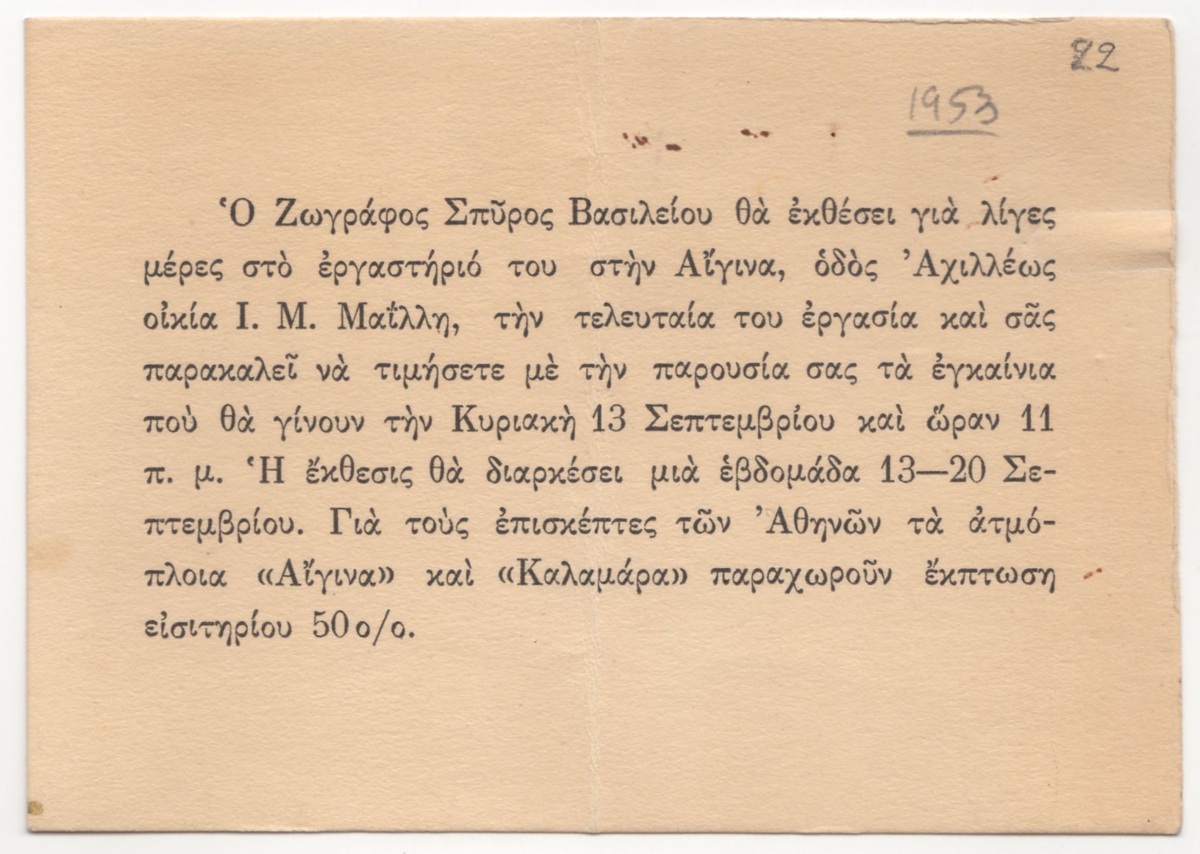 22
1953
Ὁ Ζωγράφος Σπῦρος Βασιλείου θὰ ἐκθέσει γιὰ λίγες
μέρες στὸ ἐργαστήριό του στὴν Αἴγινα, ὁδὸς Ἀχιλλέως
οἰκία Ι. Μ. Μαΐλλη, τὴν τελευταία του ἐργασία καὶ σᾶς
παρακαλεῖ νὰ τιμήσετε μὲ τὴν παρουσία σας τὰ ἐγκαίνια
ποὺ θὰ γίνουν τὴν Κυριακὴ 13 Σεπτεμβρίου καὶ ὥραν 11
π. μ. Ἡ ἔκθεσις θὰ διαρκέσει μιὰ ἑβδομάδα 13—20 Σε-
πτεμβρίου. Γιὰ τοὺς ἐπισκέπτες τῶν Ἀθηνῶν τὰ ἀτμό-
πλοια «Αἴγινα» καὶ «Καλαμάρα» παραχωροῦν ἔκπτωση
εἰσιτηρίου 50 ο/ο.